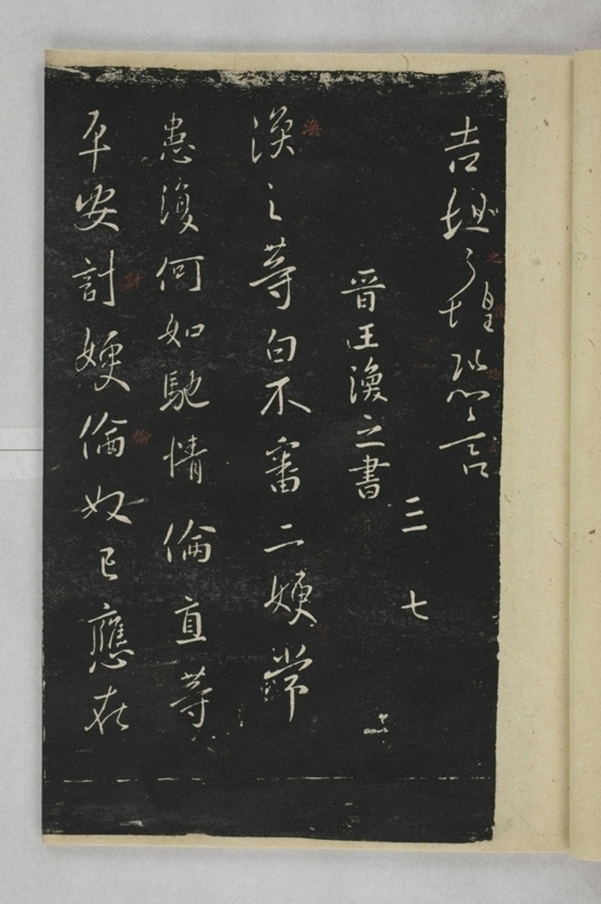 吉之惶言
三 七
晉王渙之書
渙
渙之等白不審二嫂常
患復何如馳情倫直等
平安計嫂倫奴已應在
計
倫